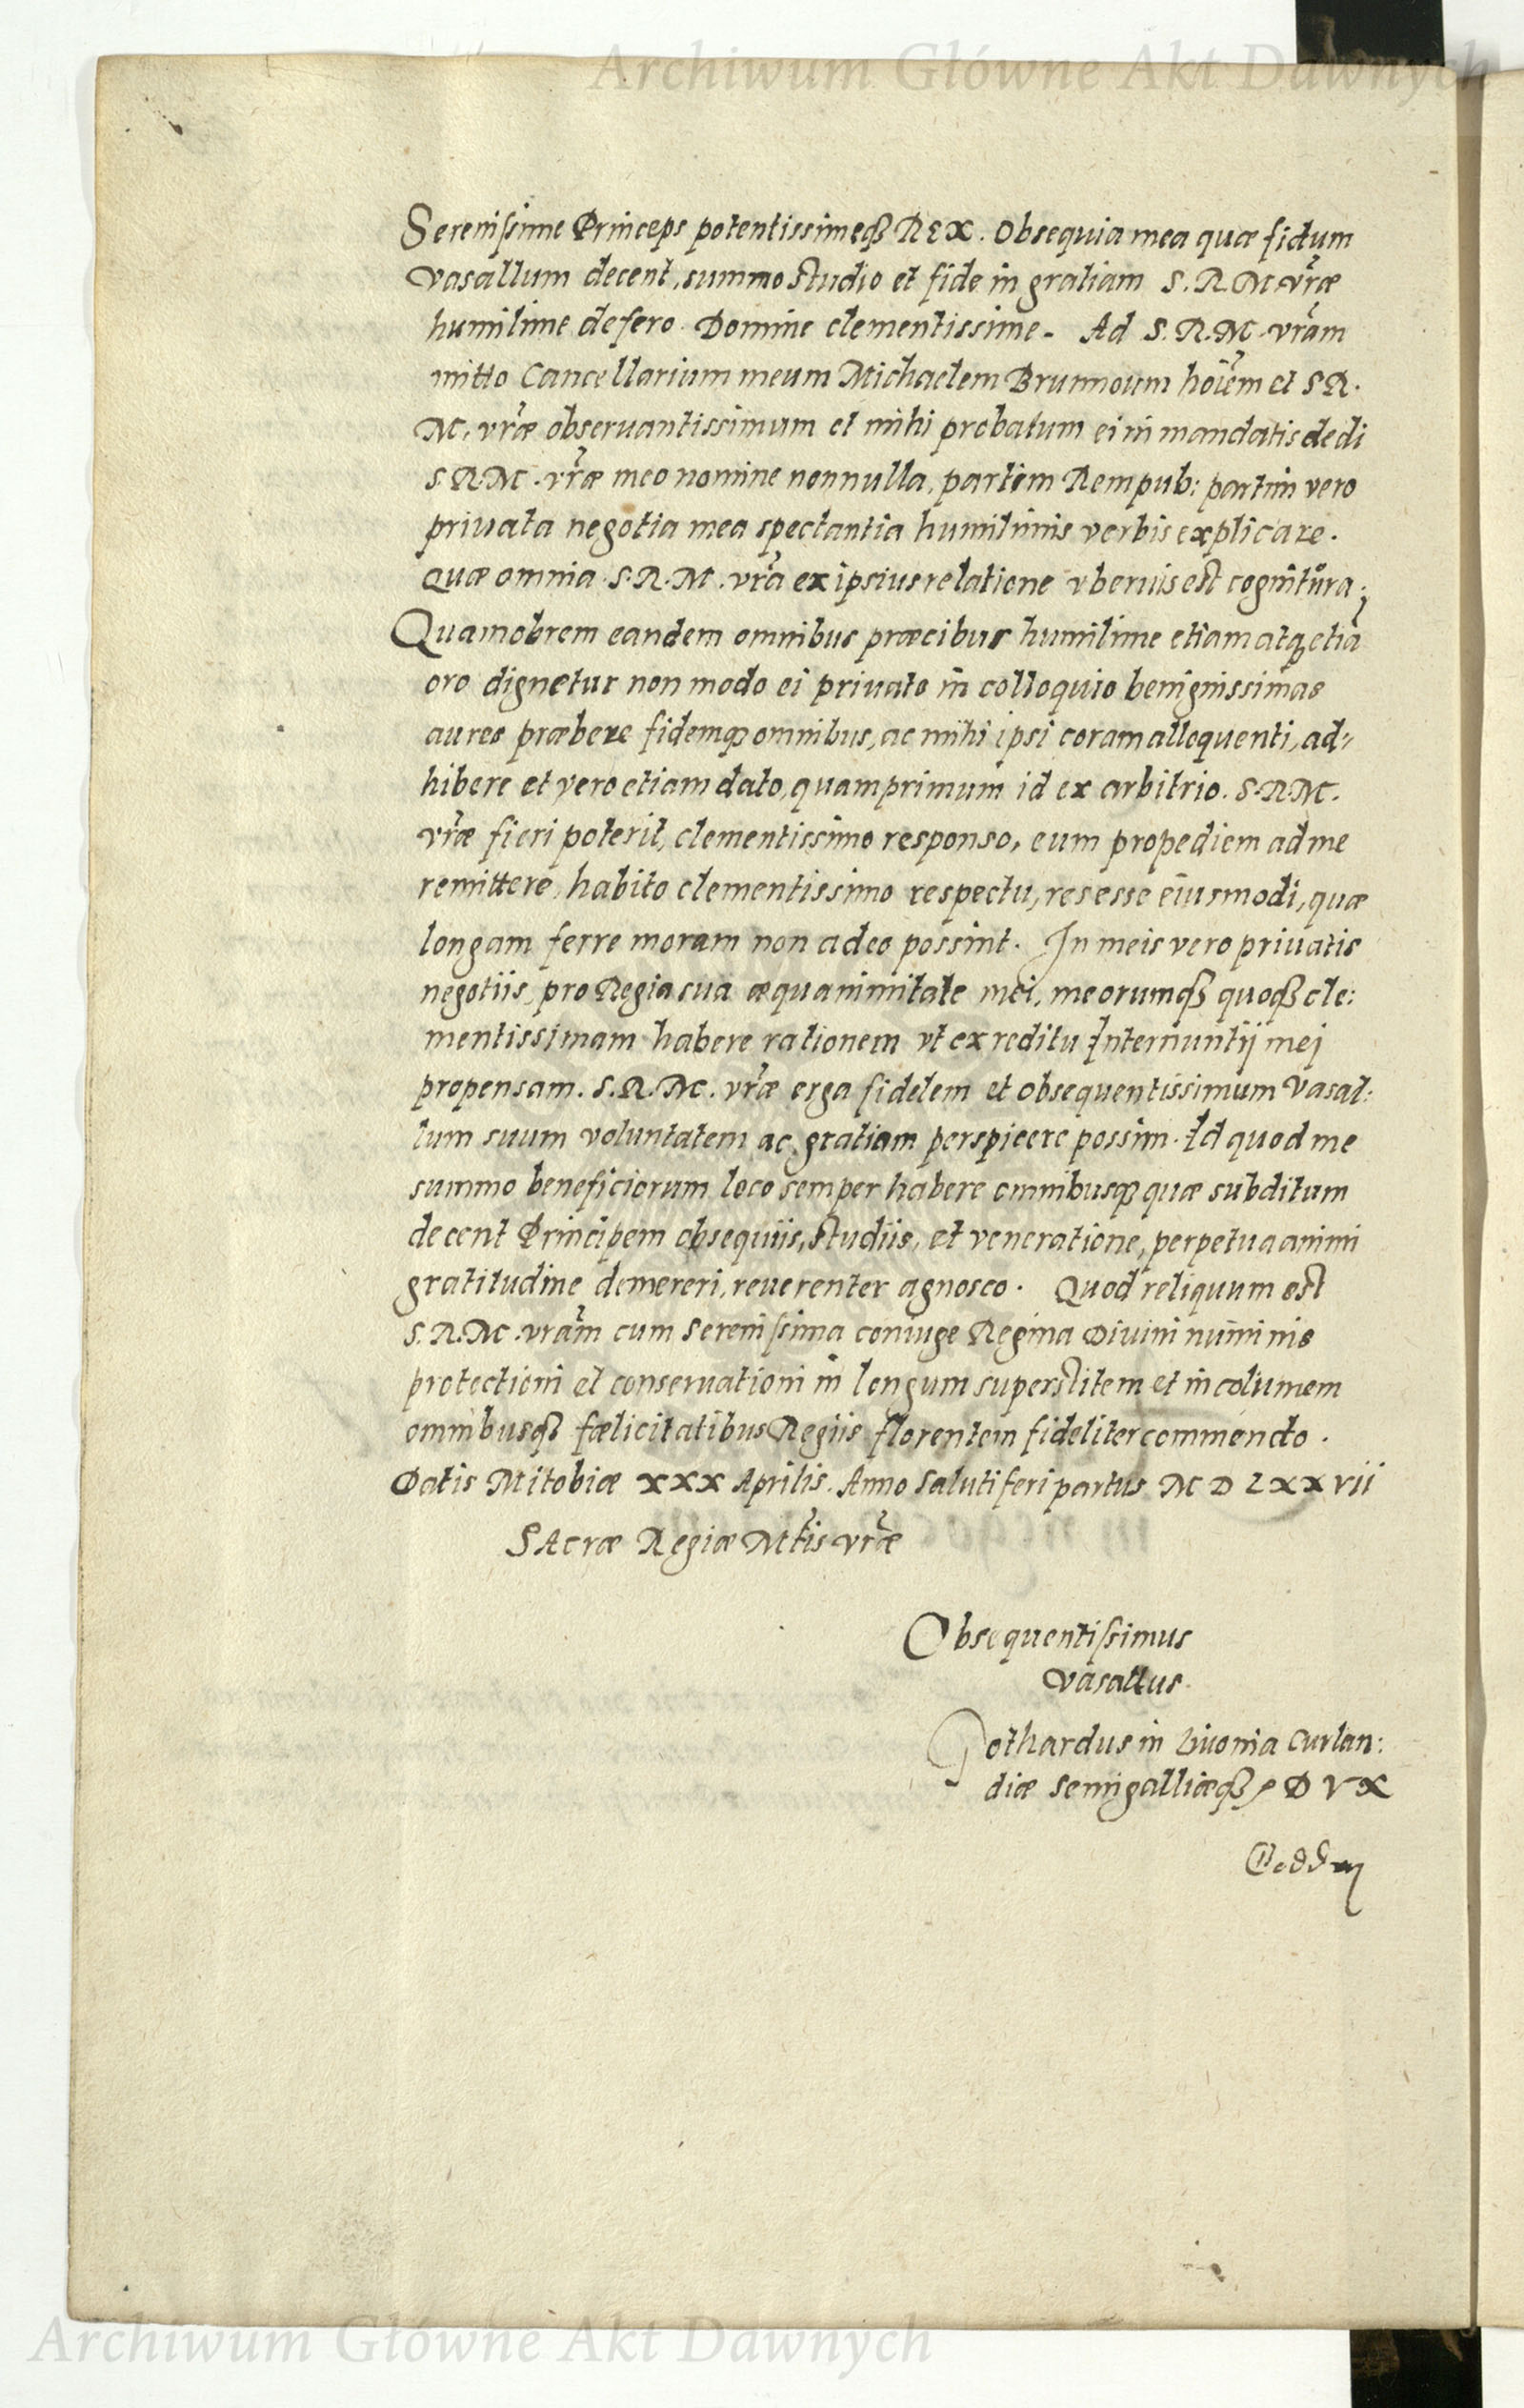 Archiwum Główne Akt Dawnych
Serenissime Princeps potentissimeq₃ REX. Obsequia mea quæ fidum
vasallum decent, summo studio et fide in gratiam S. R. M. vr̃æ
humilime defero. Domine clementissime. Ad S. R. M. vr̃am
mitto Cancellarium meum Michaelem Brunnoum hoĩem et S R.
M. vr̃æ obseruantissimum et mihi probatum ei in mandatis dedi
S. R. M. vr̃æ meo nomine nonnulla, partim Rempub: partim vero
priuata negotia mea spectantia humilimis verbis explicare.
Quæ omnia S. R. M. vr̃a ex ipsius relatione vberius est cognitura;
Quamobrem eandem omnibus præcibus humilime etiam atq₃ etiã
oro dignetur non modo ei priuato in colloquio benignissimas
aures præbere fidemq₃ omnibus, ac mihi ipsi coram alloquenti, ad⸗
hibere et vero etiam dato, quamprimum id ex arbitrio. S. R. M.
vr̃æ fieri poterit, clementissimo responso, eum propediem ad me
remittere, habito clementissimo respectu, res esse eiusmodi, quæ
longam ferre moram non adeo possint. In meis vero priuatis
negotiis, pro Regia sua æquanimitate mei, meorumq₃ quoq₃ cle:
mentissimam habere rationem vt ex reditu Internuntij mei
propensam. S. R. M. vr̃æ erga fidelem et obsequentissimum vasal:
lum suum voluntatem ac gratiam perspicere possim. Id quod me
summo beneficiorum loco semper habere omnibusq₃ quæ subditum
decent Principem obsequiis, studiis, et veneratione, perpetua animi
gratitudine demereri, reuerenter agnosco. Quod reliquum est
S. R. M. vr̃am cum Serenissima coniuge Regina Diuini numinis
protectioni et conseruationi in longum superstitem et incolumem
omnibusq₃ fælicitatibus Regiis florentem fideliter commendo.
Datis Mitobiæ XXX Aprilis. Anno salutiferi partus M D LXXVII
SAcræ Regiæ Mt̃is vr̃æ
Obsequentissimus
vasallus.
Gothardus in Liuonia Curlan:
diæ Semigalliæq₃ DVX
Archiwum Główne Akt Dawnych